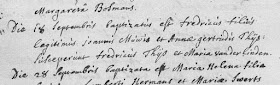 Margareta Bolmans.
Die 18 Septembris baptizatus est fredricus filius
legitimus joannis Müwis et Annæ gertrudis Thijs.
Susceperunt fredricus Thijs et Maria vander linden.
Die 28 Septembris baptizata est Maria Helena filia
Hermani et Mariæ Swerts